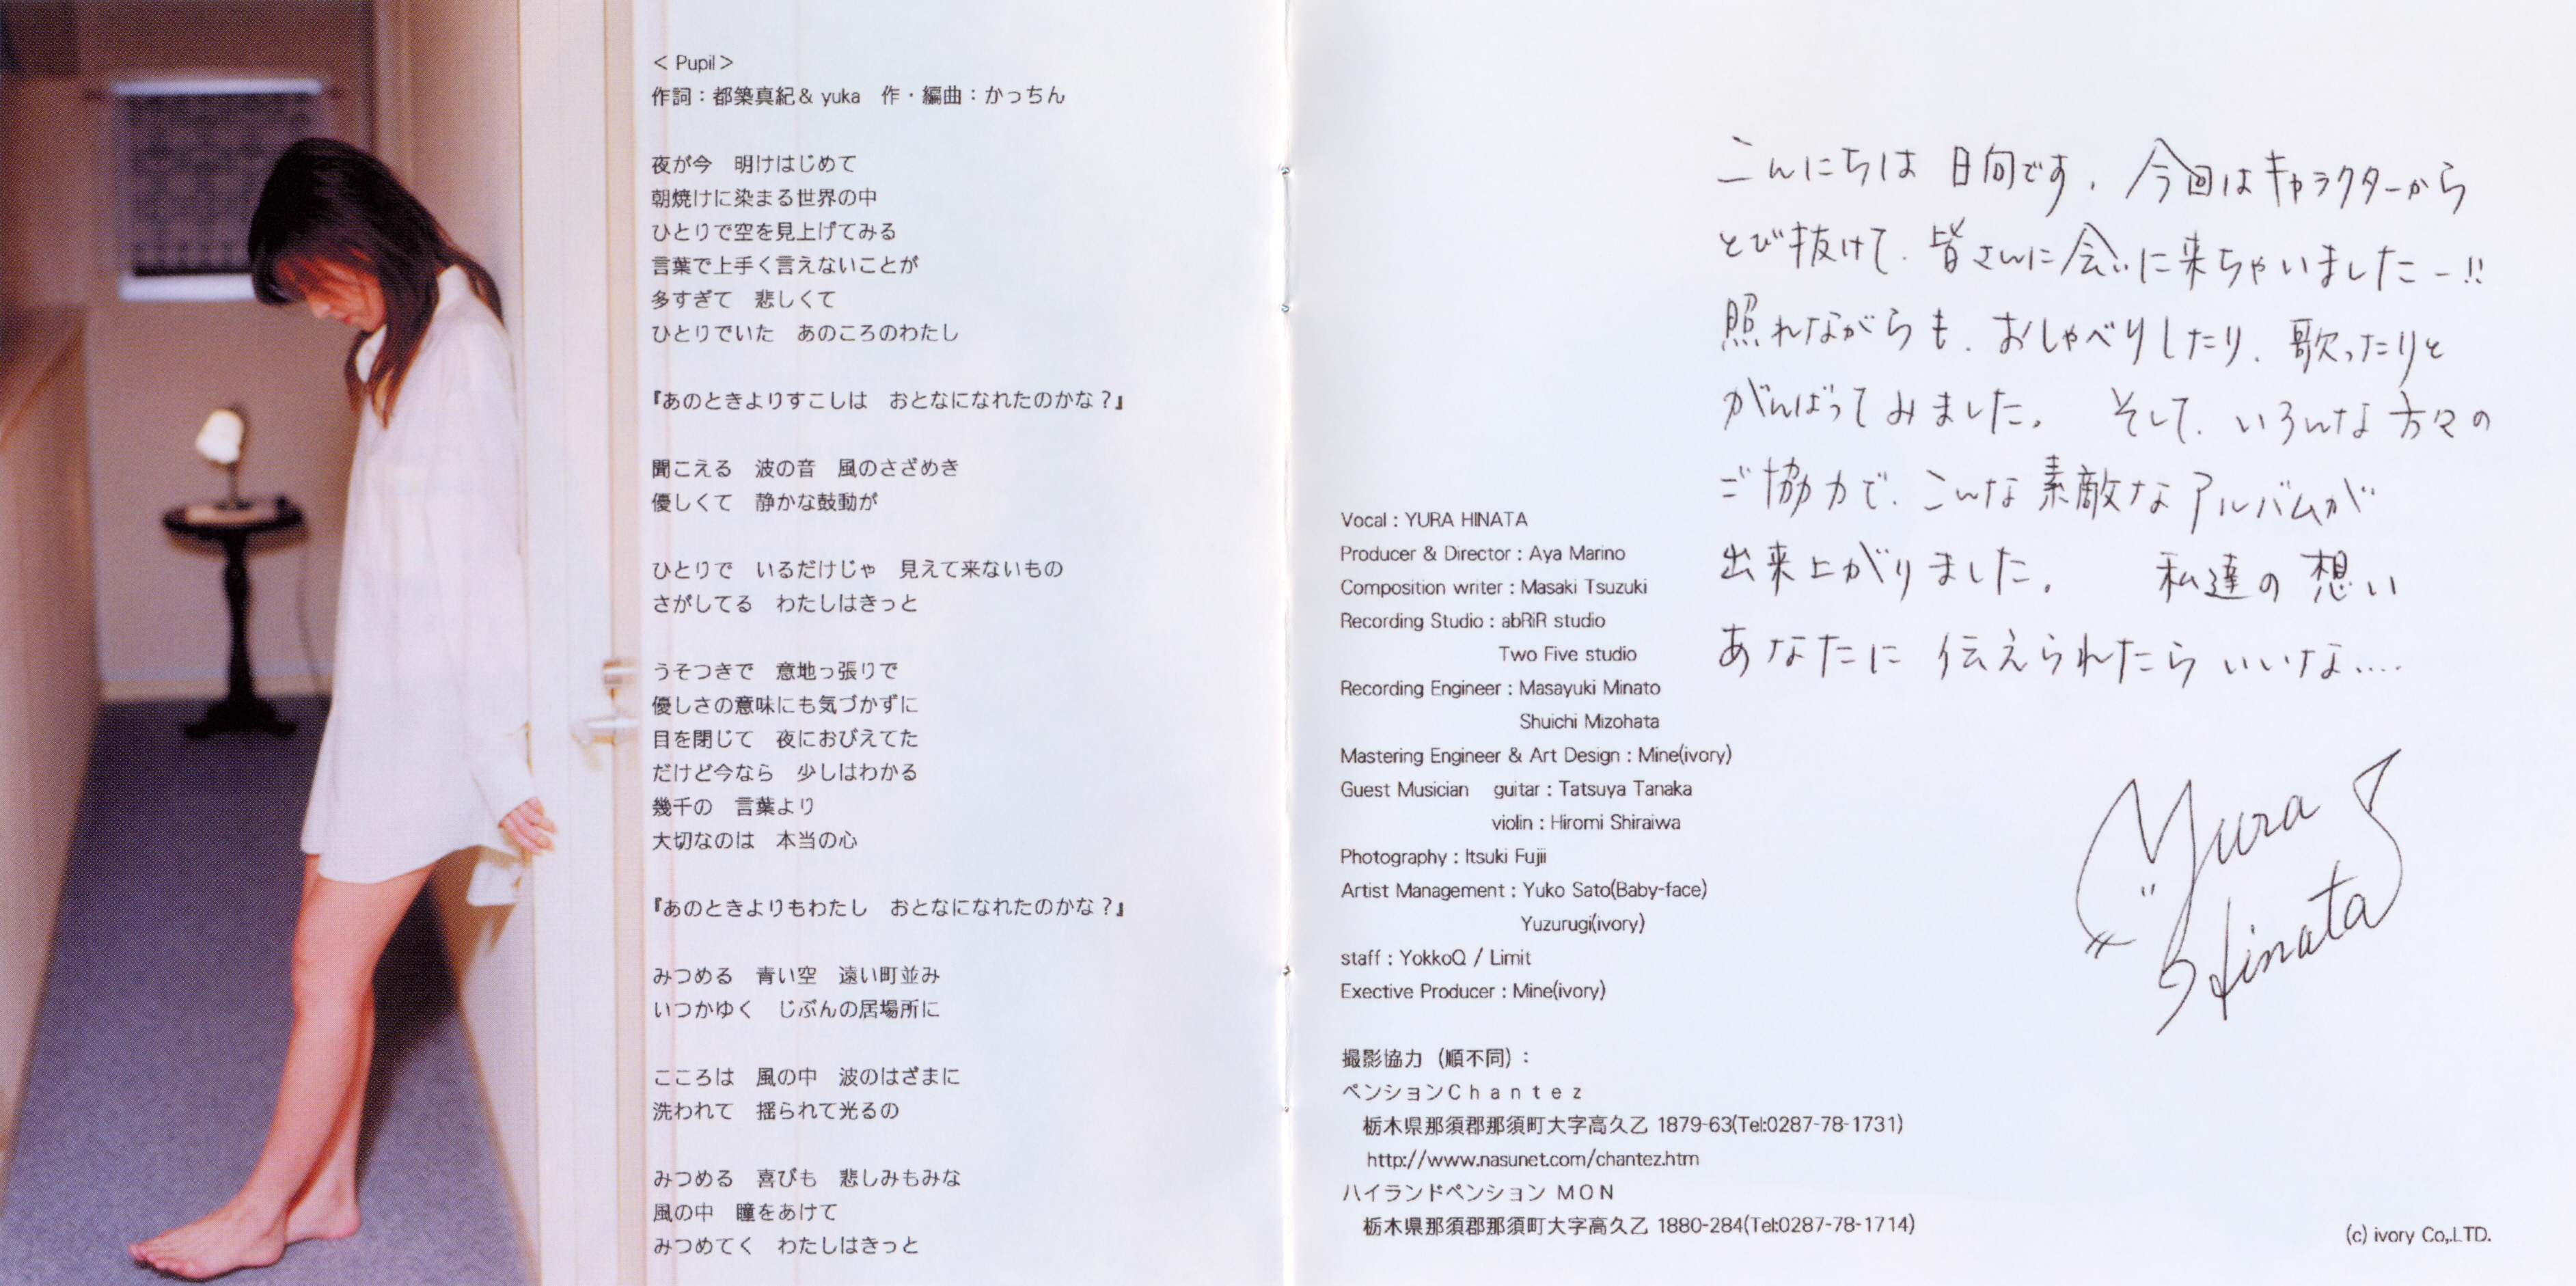 < Pupil >
作詞：都築真紀& yuka　作・編曲：かっちん
夜が今　明けはじめて
朝焼けに染まる世界の中
ひとりで空を見上げてみる
言葉で上手く言えないことが
多すぎて　悲しくて
ひとりでいた　あのころのわたし
『あのときよりすこしは　おとなになれたのかな？』
聞こえる　波の音　風のさざめき
優しくて　静かな鼓動が
ひとりで　いるだけじゃ　見えて来ないもの
さがしてる　わたしはきっと
うそつきで　意地っ張りで
優しさの意味にも気づかずに
目を閉じて　夜におびえてた
だけど今なら　少しはわかる
幾千の　言葉より
大切なのは　本当の心
『あのときよりもわたし　おとなになれたのかな？』
みつめる　青い空　遠い町並み
いつかゆく　じぶんの居場所に
こころは　風の中　波のはざまに
洗われて　揺られて光るの
みつめる　喜びも　悲しみもみな
風の中　瞳をあけて
みつめてく　わたしはきっと
こんにちは 日向です. 今回はキャラクターから
とび抜けて. 皆さんに会いに来ちゃいましたー!!
照れながらも. おしゃべりしたり. 歌ったりと
がんばってみました。 そして. いろんな方々の
ご協力で. こんな素敵なアルバムが
出来上がりました。 私達の想い
あなたに 伝えられたら いいな....
Yura
Hinata
Vocal : YURA HINATA
Producer & Director : Aya Marino
Composition writer : Masaki Tsuzuki
Recording Studio : abRiR studio
Two Five studio
Recording Engineer : Masayuki Minato
Shuichi Mizohata
Mastering Engineer & Art Design : Mine(ivory)
Guest Musician　guitar : Tatsuya Tanaka
violin : Hiromi Shiraiwa
Photography : Itsuki Fujii
Artist Management : Yuko Sato(Baby-face)
Yuzurugi(ivory)
staff : YokkoQ / Limit
Exective Producer : Mine(ivory)
撮影協力（順不同）：
ペンションＣｈａｎｔｅｚ
栃木県那須郡那須町大字高久乙 1879-63(Tel:0287-78-1731)
http://www.nasunet.com/chantez.htm
ハイランドペンション ＭＯＮ
栃木県那須郡那須町大字高久乙 1880-284(Tel:0287-78-1714)
(c) ivory Co,.LTD.